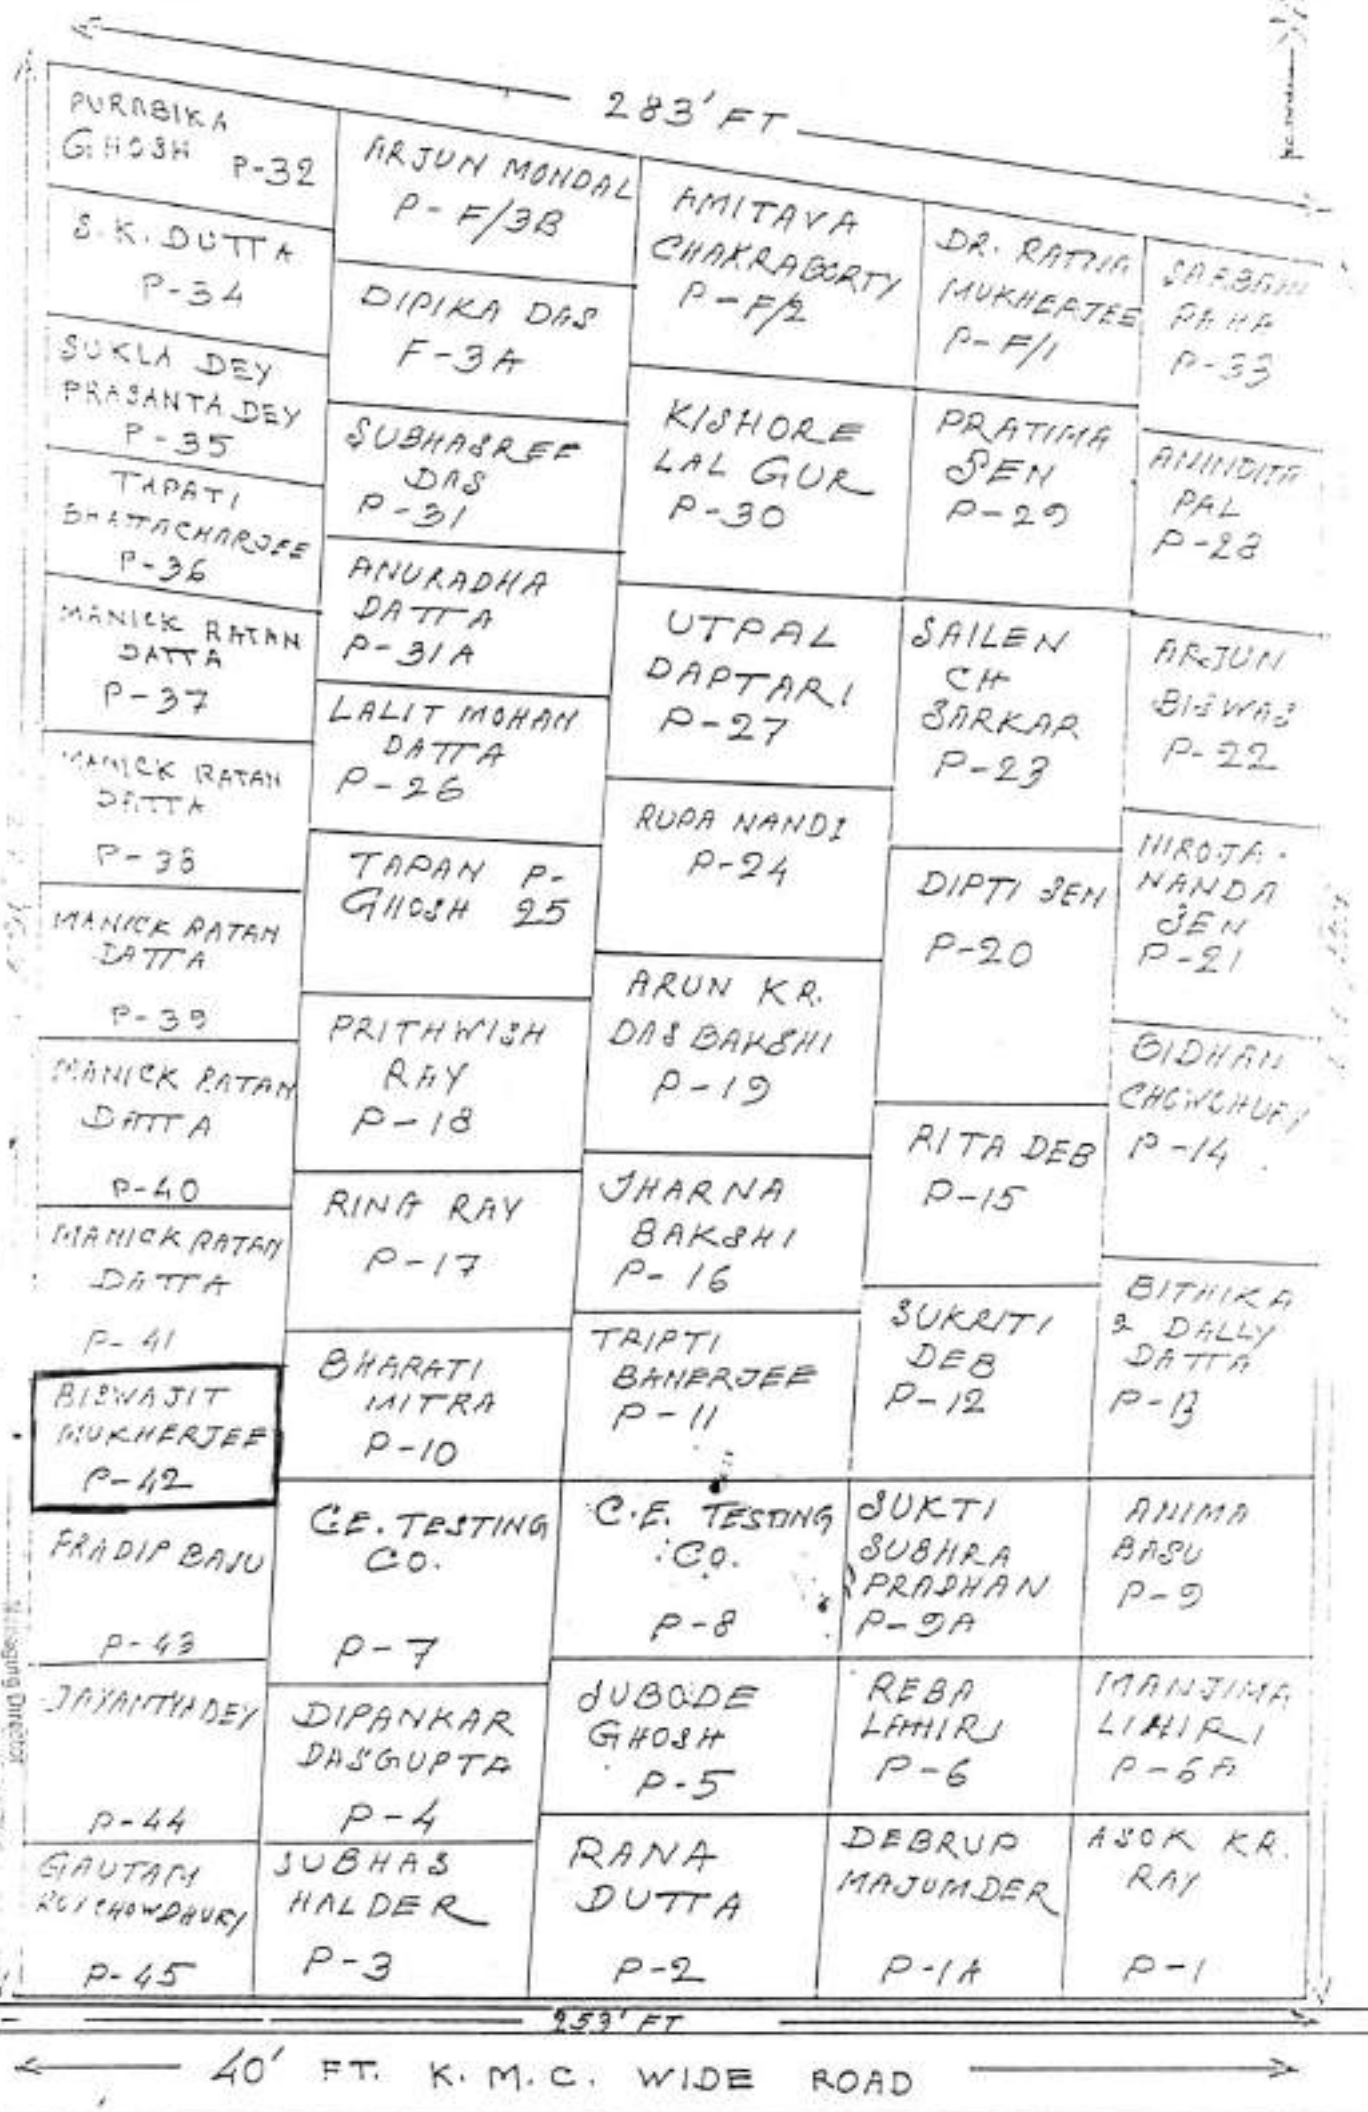 283' FT
PURABIKA
GHOSH P-32
S.K. DUTTA
P-34
SUKLA DEY
PRASANTA DEY
P-35
TAPATI
BHATTACHARJEE
P-36
MANICK RATAN
DATTA
P-37
MANICK RATAN
DATTA
P-38
MANICK RATAN
DATTA
P-39
MANICK RATAN
DATTA
P-40
MANICK RATAN
DATTA
P-41
BISWAJIT
MUKHERJEE
P-42
PRADIP BASU
P-43
DEY
P-44
GAUTAM
ROYCHOWDHURY
P-45
ARJUN MONDAL
P-F/3B
DIPIKA DAS
F-3A
SUBHASREE
DAS
P-31
ANURADHA
DATTA
P-31A
LALIT MOHAN
DATTA
P-26
TAPAN P-
GHOSH 25
PRITHWISH
RAY
P-18
RINA RAY
P-17
BHARATI
MITRA
P-10
C.E. TESTING
CO.
P-7
DIPANKAR
DASGUPTA
P-4
SUBHAS
HALDER
P-3
AMITAVA
CHAKRABORTY
P-F/2
KISHORE
LAL GUR
P-30
UTPAL
DAPTARI
P-27
RUPA NANDI
P-24
ARUN KR.
DAS BAKSHI
P-19
JHARNA
BAKSHI
P-16
TRIPTI
BANERJEE
P-11
C.E. TESTING
CO.
P-8
SUBODE
GHOSH
P-5
RANA
DUTTA
P-2
DR. RATNA
MUKHERJEE
P-F/1
PRATIMA
SEN
P-29
SAILEN
CH
SARKAR
P-23
DIPTI SEN
P-20
RITA DEB
P-15
SUKRITI
DEB
P-12
SUKTI
SUBHRA
PRADHAN
P-9A
REBA
LAHIRI
P-6
DEBRUP
MAJUMDER
P-1A
P-33
ANINDITA
PAL
P-28
ARJUN
BISWAS
P-22
NIROJA-
NANDA
SEN
P-21
BIDHAN
CHOWDHURY
P-14
BITHIKA
& DALLY
DATTA
P-13
ANIMA
BASU
P-9
MANJIMA
LIHIRI
P-6A
ASOK KR.
RAY
P-1
Managing Director
253' FT
40' FT. K.M.C. WIDE ROAD